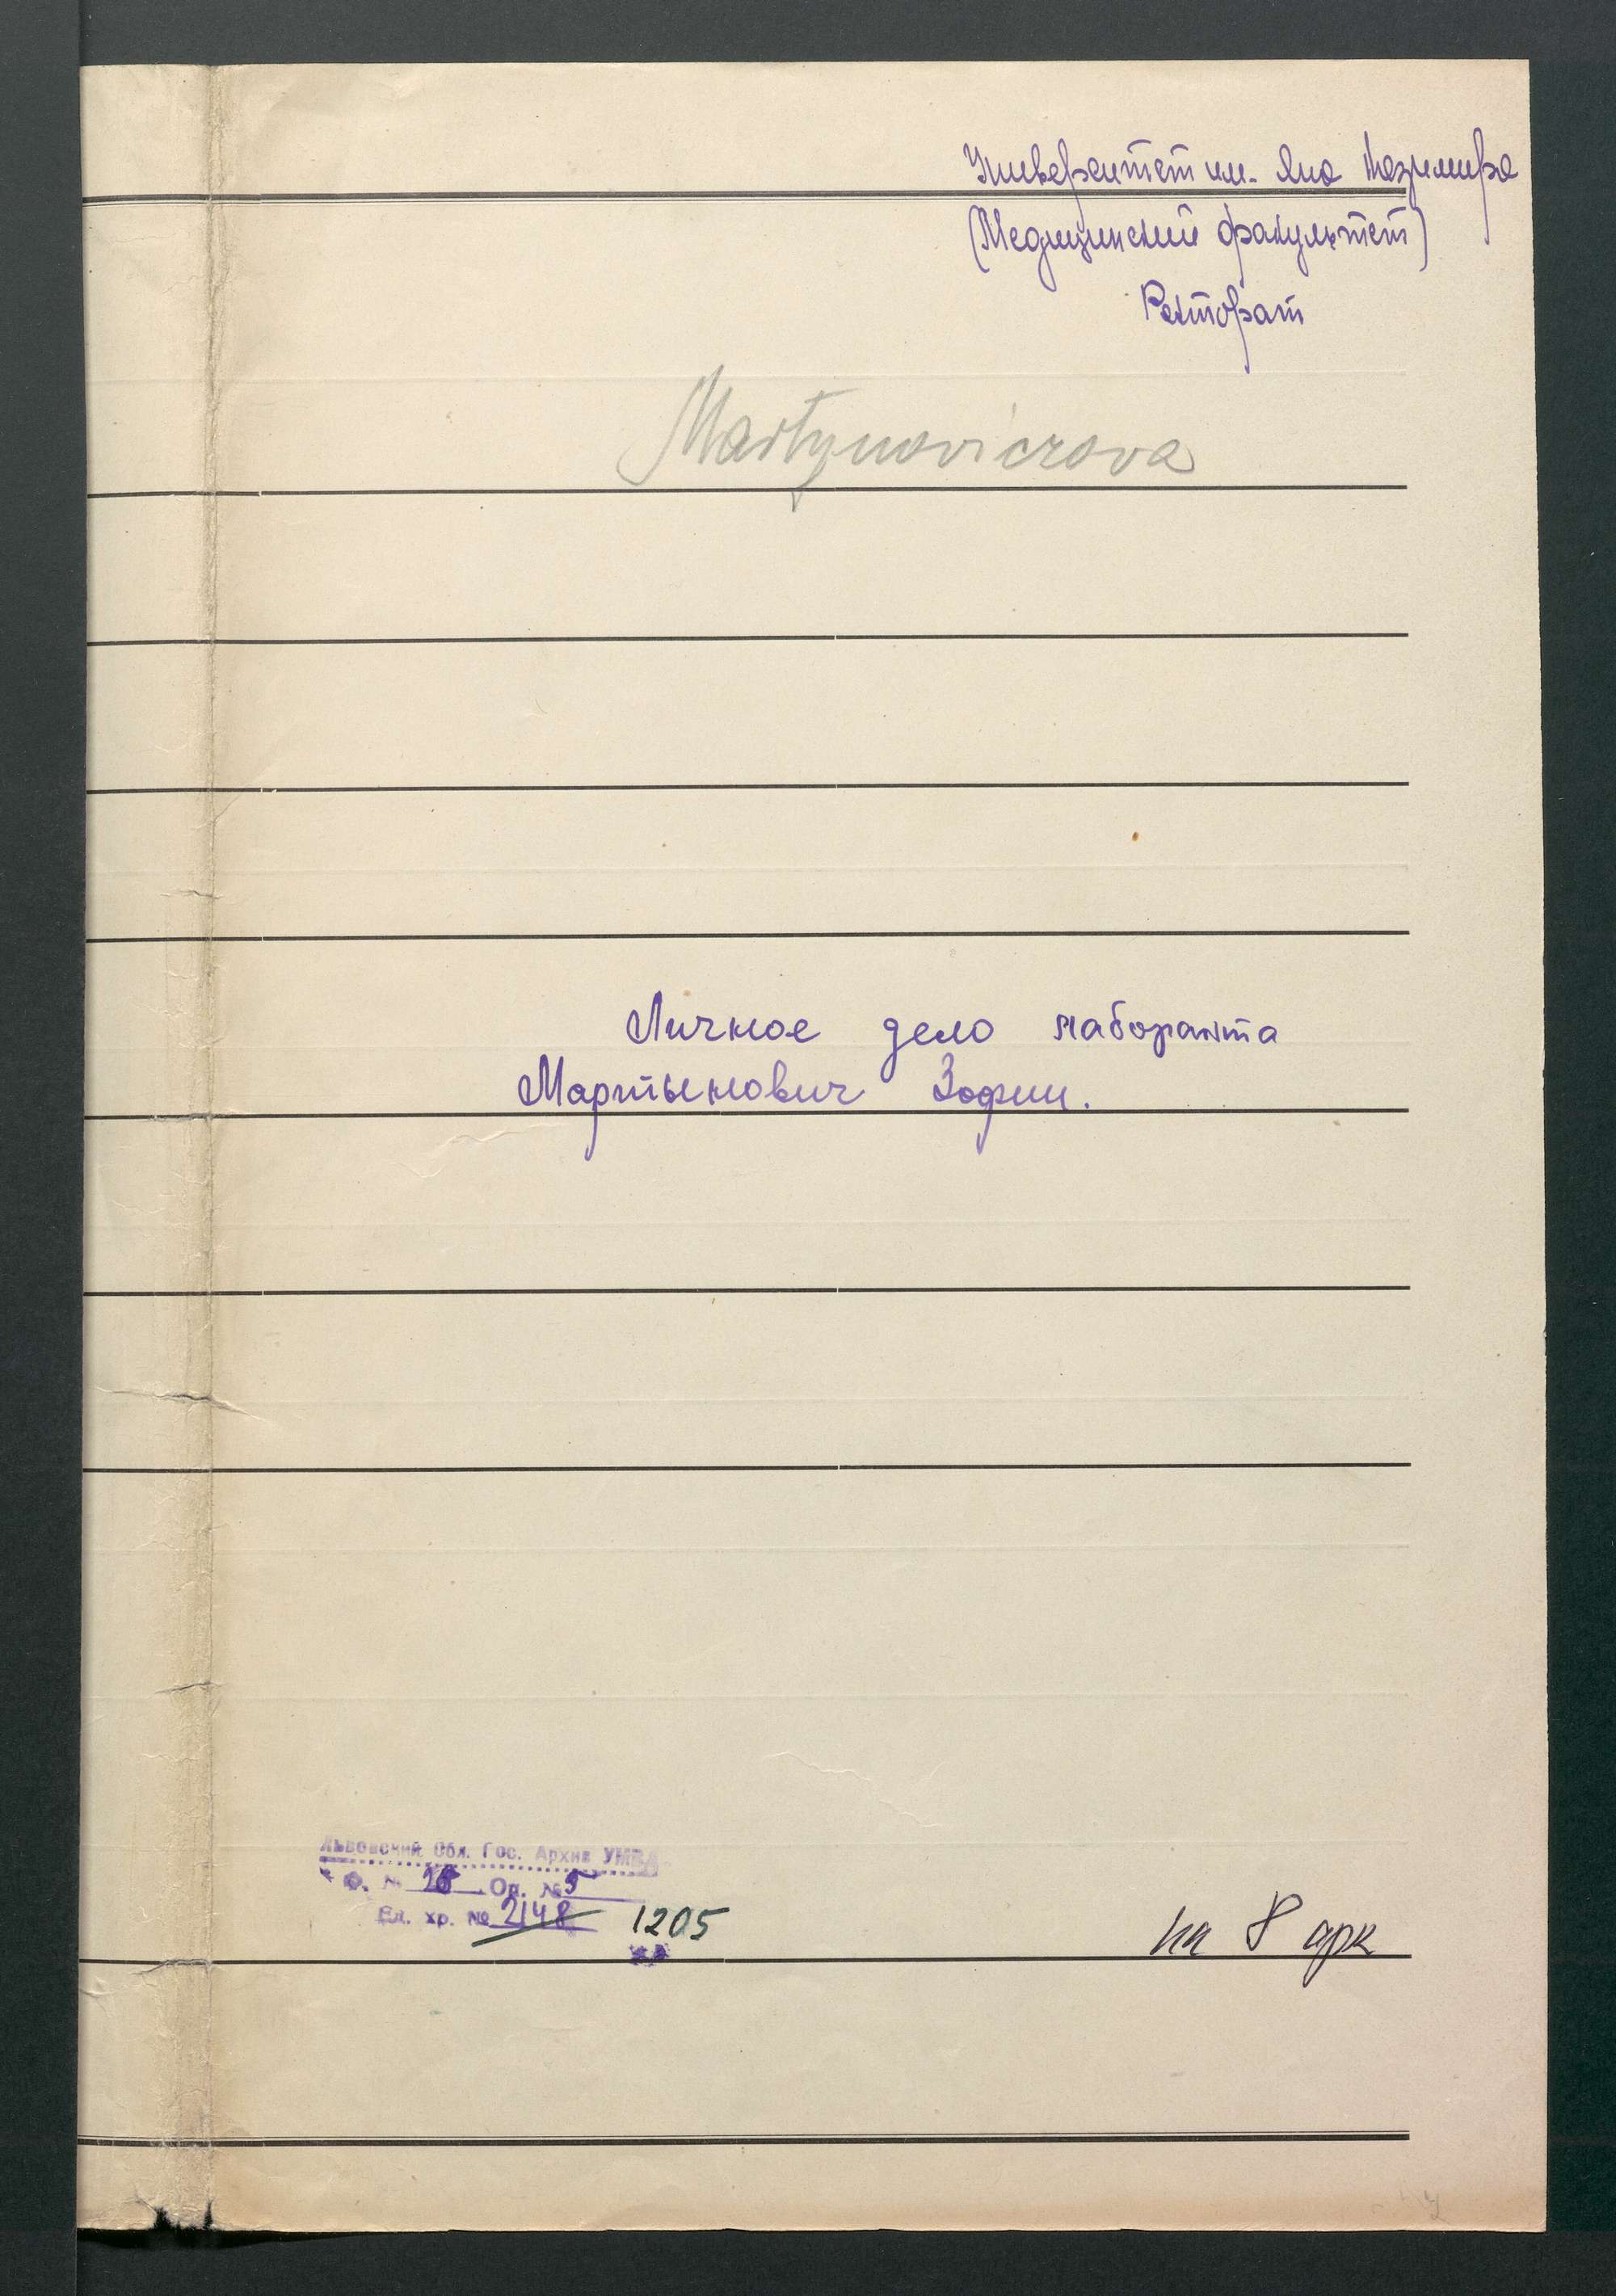 Университет им. Яна Казимира
(Медицинский факультет)
Ректорат
Martynowiczowa
Личное дело лаборанта
Мартынович Зофии.
Львовский Обл. Гос. Архив УМВД
Ф. № 26 Оп. № 5
Ед. хр. № 2148 1205
на 8 арк